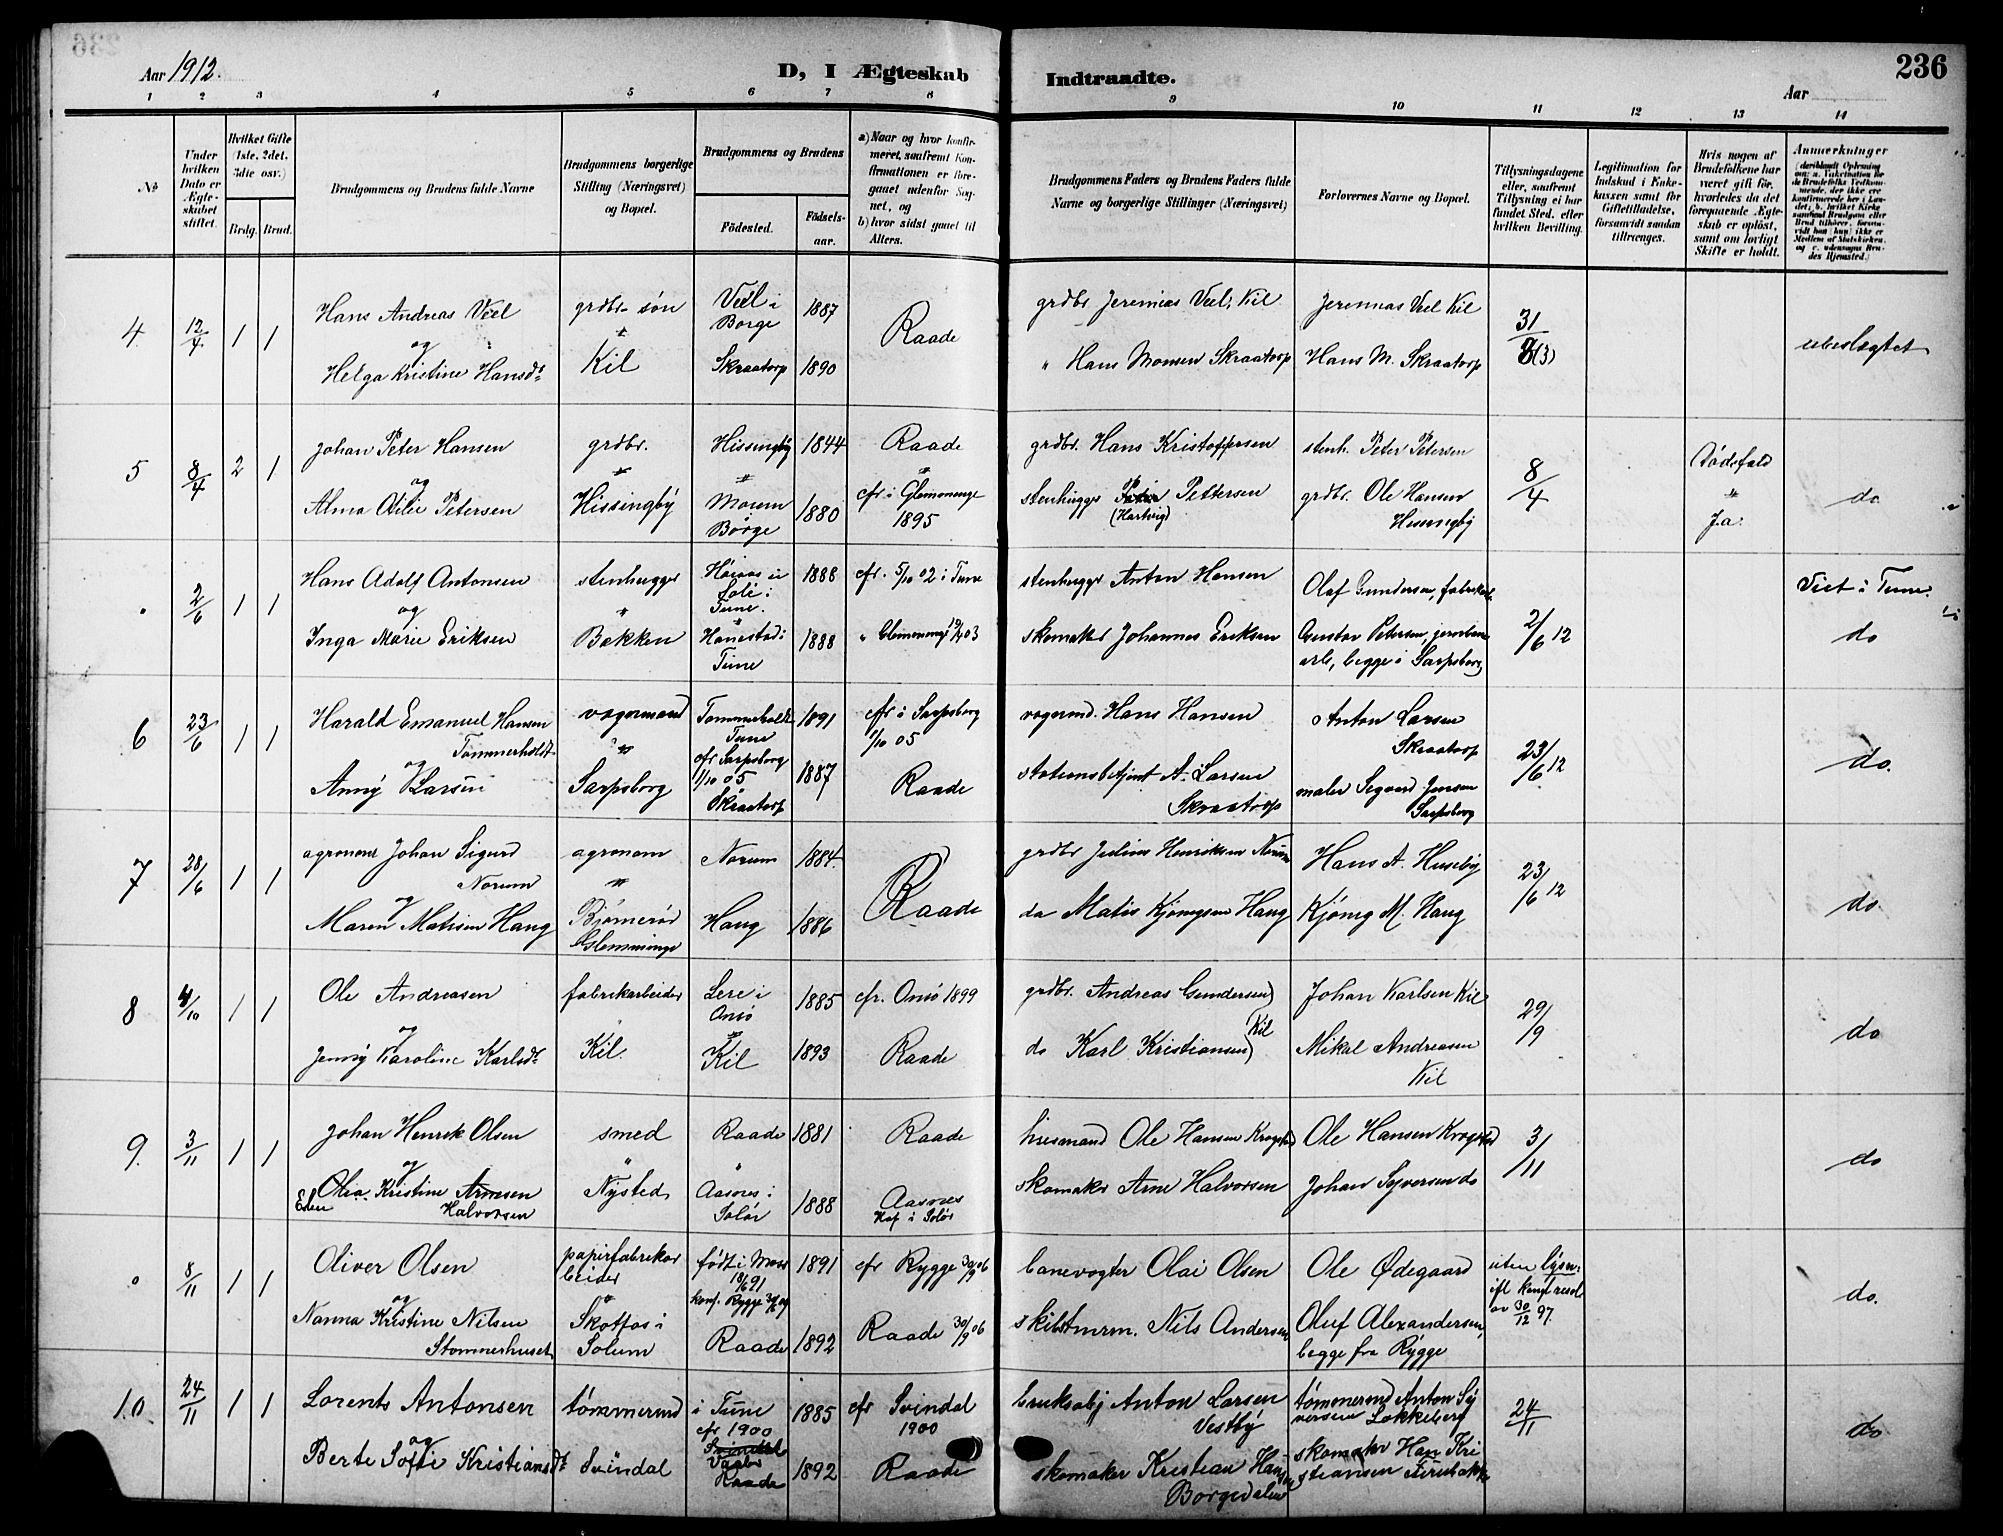 236
Aar 1912.
D, I Ægteskab Indtraadte.
Aar
1 2 3 4 5 6 7 8 9 10 11 12 13 14
№
Under hvilken Dato er Ægteskabet stiftet.
Hvilket Gifte (1ste, 2det, 3die osv.)
Brdg. Brud.
Brudgommens og Brudens fulde Navne
Brudgommens borgerlige Stilling (Næringsvei) og Bopæl.
Brudgommens og Brudens
Födested. Födsels-aar.
a) Naar og hvor konfirmeret, saafremt Konfirmationen er foregaaet udenfor Sognet, og
b) hvor sidst gaaet til Alters.
Brudgommens Faders og Brudens Faders fulde Navne og borgerlige Stillinger (Næringsvei)
Forlovernes Navne og Bopæl.
Tillysningsdagene eller, saafremt Tillysning ei har fundet Sted, efter hvilken Bevilling.
Legitimation for Indskud i Enkekassen samt for Giftetilladelse, forsaavidt saadan tiltrænges.
Hvis nogen af Brudefolkene har været gift för, hvorledes da det foregaaende Ægteskab er oplöst, samt om lovligt Skifte er holdt.
Anmerkninger
4 12/4 1 1 Hans Andreas Veel grdbr. søn Veel i Borge 1887 Raade grdbr Jeremias Veel, Kil Jeremias Veel Kil 31/3 (3) ubeslægtet
og
Helga Kristine Hansdt Kil Skraatorp 1890 " Hans Monsen Skraatorp Hans M. Skraatorp
5 8/4 2 1 Johan Peter Hansen grdbr. Hissingby 1844 Raade grdbr. Hans Kristoffersen stenh. Peter Petersen 8/4 Dødsfald do
og
Alma Otilie Petersen Hissingby Moum Borge 1880 cfr i Glemminge 1895 stenhugger Pettersen (Hartvig) grdbr. Ole Hansen Hissingby Ja.
2/6 1 1 Hans Adolf Antonsen stenhugger Tune 1888 cfr. 5/10 02 i Tune stenhuggr Anton Hansen Olaf Gundersen, fabrikarb. 2/6 12 Viet i Tune.
og
Inga Marie Eriksen Bakken Tune 1888 " Glemminge skomaker Johannes Eriksen Gustav Petersen, begge i Sarpsborg do
6 23/6 1 1 Harald Emanuel Hansen Tommerholdt vognmand Tommerholdt Tune 1891 cfr i Sarpsborg 1/10 05 vognmd. Hans Hansen Anton Larsen Skraatorp 23/6 12 do.
og
Anny Larsen Sarpsborg cfr Sarpsborg 1/10 05 Skraatorp 1887 Raade stationsbetjent A. Larsen Skraatorp maler Segaard Jensen Sarpsborg
7 28/6 1 1 agronom Johan Sigurd Norum agronom Norum 1884 Raade grdbr Julius Henriksen Norum Hans A. Huseby 23/6 12 do
og
Maren Matisen Haug Bjørnerød Glemminge Haug 1886 do Matis Kjønigsen Haug Kjønig M. Haug
8 4/10 1 1 Ole Andreasen fabrikarbeider Lere i Onsø 1885 cfr. Onsø 1899 grdbr. Andreas Gundersen Johan Karlsen Kil 29/9 do
og
Jenny Karoline Karlsdt Kil. Kil 1893 Raade do Karl Kristiansen Kil Mikal Andreasen Kil
9. 3/11 1 1 Johan Henrik Olsen smed Raade 1881 Raade husmand Ole Hansen Krogstad Ole Hansen Krogstad 3/11 do
og
Olia Kristine Arnesen Halvorsen Nysted Aasnes i Solør 1888 Aasnes Hof i Solør skomaker Arne Halvorsen Johan Syversen do
8/11 1 1 Oliver Olsen papirfabrikarbeider født i Moss 1891 cfr Rygge 30/9 06 banevogter Olai Olsen Ole Ødegaard uten lysn. ifl kongl resol av 30/12 97. do.
og
Nanna Kristine Nilsen Stommerhuset Skotfos i Solum Raade 1892 Raade 30/9 06 Nils Andersen Oluf Alexandersen, begge fra Rygge
10 24/11 1 1 Lorents Antonsen tømmermd i Tune cfr 1900 1885 cfr Svindal 1900 Anton Larsen Vestby tømmermd Anton Syversen Løkkeberg 24/11 do
og
Berte Sofie Kristiansdt Svindal Raade 1892 Raade skomaker Kristian Hansen Borgedalen skomaker Han Kristiansen